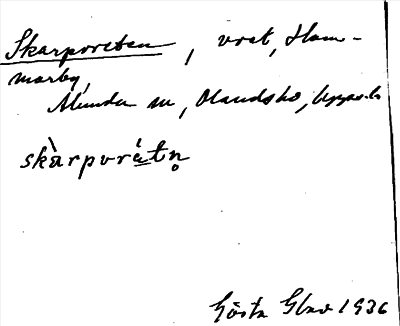 Skarpvreten, vret, Ham-
marby,
Almunda sn, Olandsho, Upps. l.
skàrpvrátṇ
Gösta Glav 1936